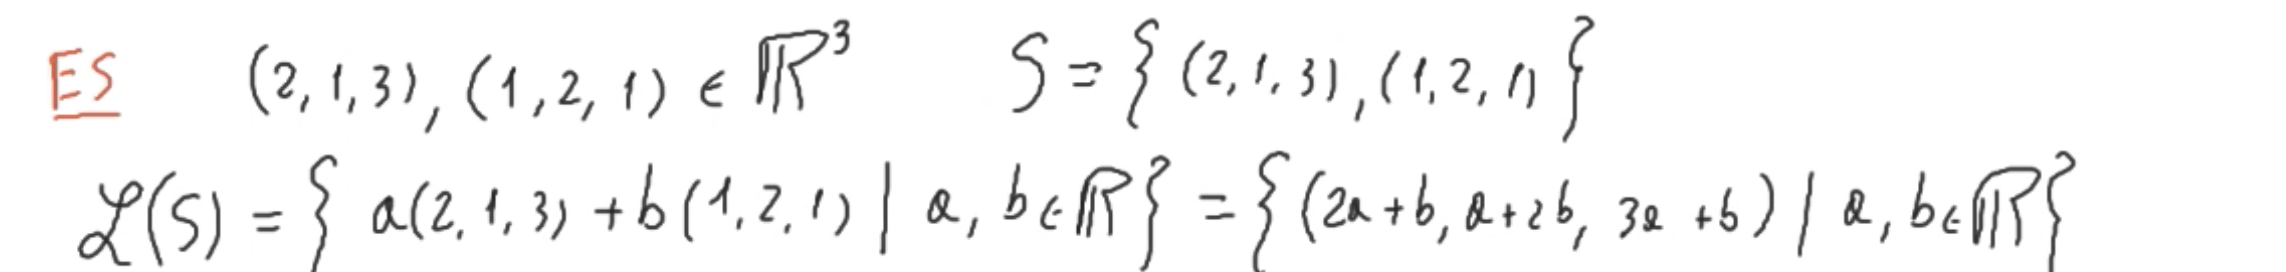 ES (2,1,3), (1,2,1) ∈ ℝ³ S = { (2,1,3), (1,2,1) }
ℒ(S) = { a(2,1,3) + b(1,2,1) | a, b ∈ ℝ } = { (2a+b, a+2b, 3a+b) | a, b ∈ ℝ }